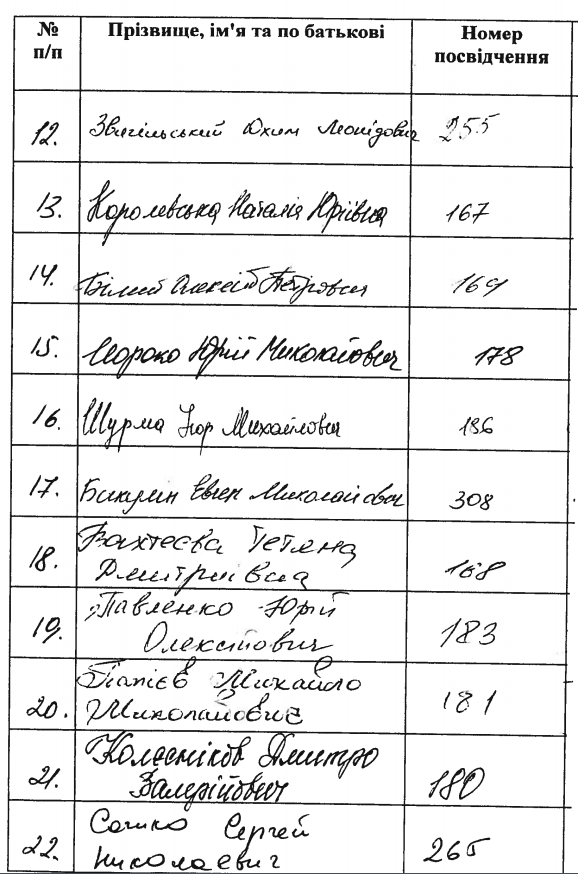 № п/п Прізвище, ім'я та по батькові Номер посвідчення
12. Звягільський Юхим Леонідович 255
13. Королевська Наталія Юріївна 167
14. Білий Олексій Петрович 169
15. Мороко Юрій Миколайович 178
16. Шурма Ігор Михайлович 196
17. Бакулин Евген Миколайович 308
18. Бахтеєва Тетяна
Дмитрівна 168
19. Павленко Юрій
Олексійович 183
20. Папієв Михайло
Миколайович 181
21. Колєсніков Дмитро
Валерійович 180
22. Сажко Сергей
Николаевич 265